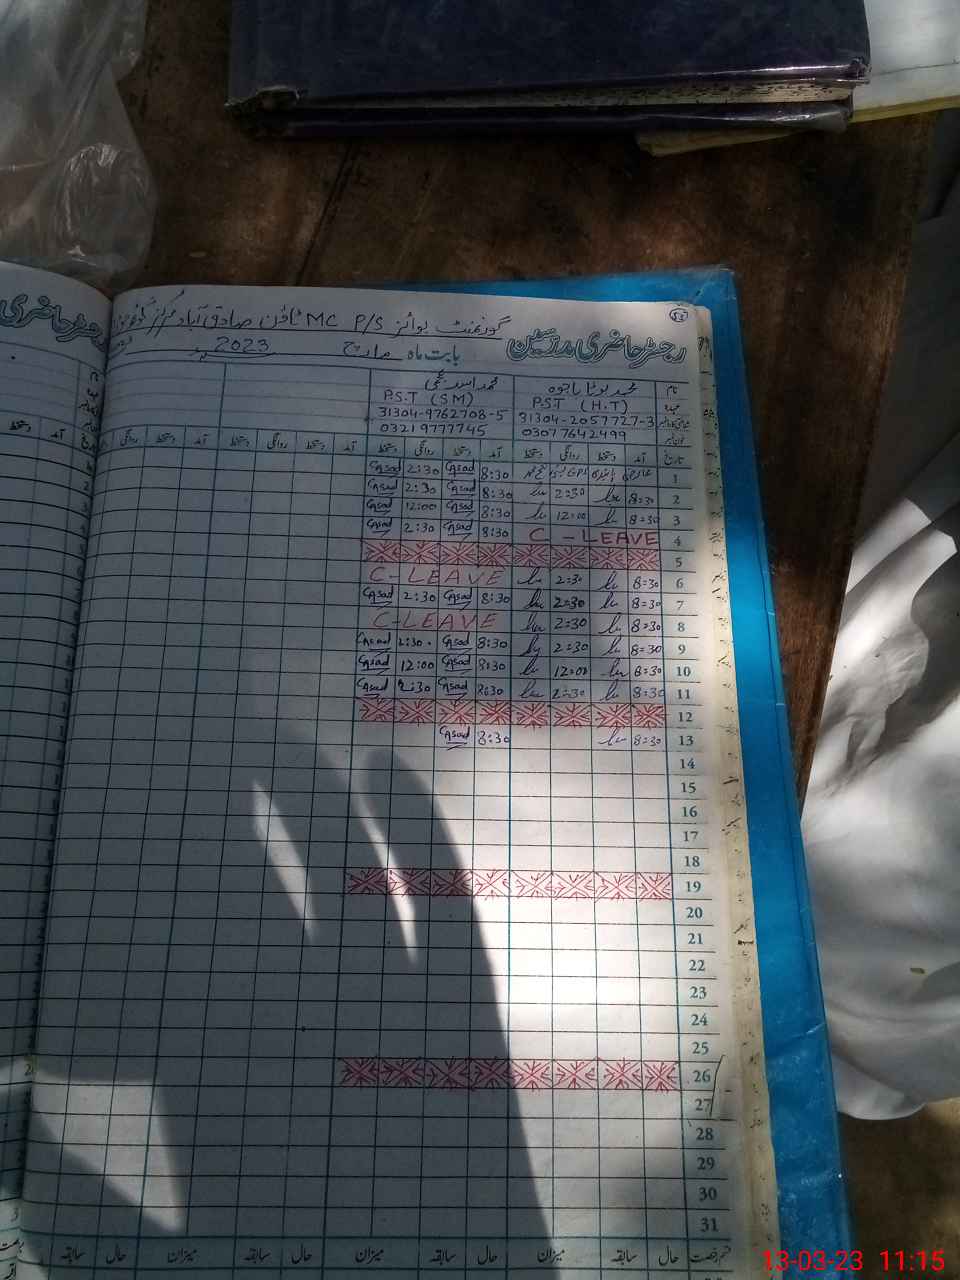 رجسٹر حاضری مدرسین گورنمنٹ بوائز MC P/S ٹاؤن صادق آباد مرکز
بابت ماہ مارچ 2023
رجسٹر حاضری
نام
عہدہ P.S.T (H.T) P.S.T (SM)
31304-2057727-3 31304-9762708-5
03077642499 03219777745
تاریخ آمد دستخط روانگی دستخط آمد دستخط روانگی دستخط آمد دستخط روانگی دستخط آمد دستخط روانگی
1 8:30 Asad 2:30 Asad
2 8=30 2=30 8:30 Asad 2:30 Asad
3 8=30 12=00 8:30 Asad 12:00 Asad
4 C - LEAVE 8:30 Asad 2:30 Asad
5
6 8=30 2=30 C-LEAVE
7 8=30 2=30 8:30 Asad 2:30 Asad
8 8=30 2=30 C-LEAVE
9 8=30 2=30 8:30 Asad 2:30 Asad
10 8=30 12=00 8:30 Asad 12:00 Asad
11 8=30 2=30 8:30 Asad 2:30 Asad
12
13 8=30 8:30 Asad
14
15
16
17
18
19
20
21
22
23
24
25
26
27
28
29
30
31
قسم رخصت حال سابقہ میزان حال سابقہ میزان حال سابقہ میزان حال سابقہ
13-03-23 11:15